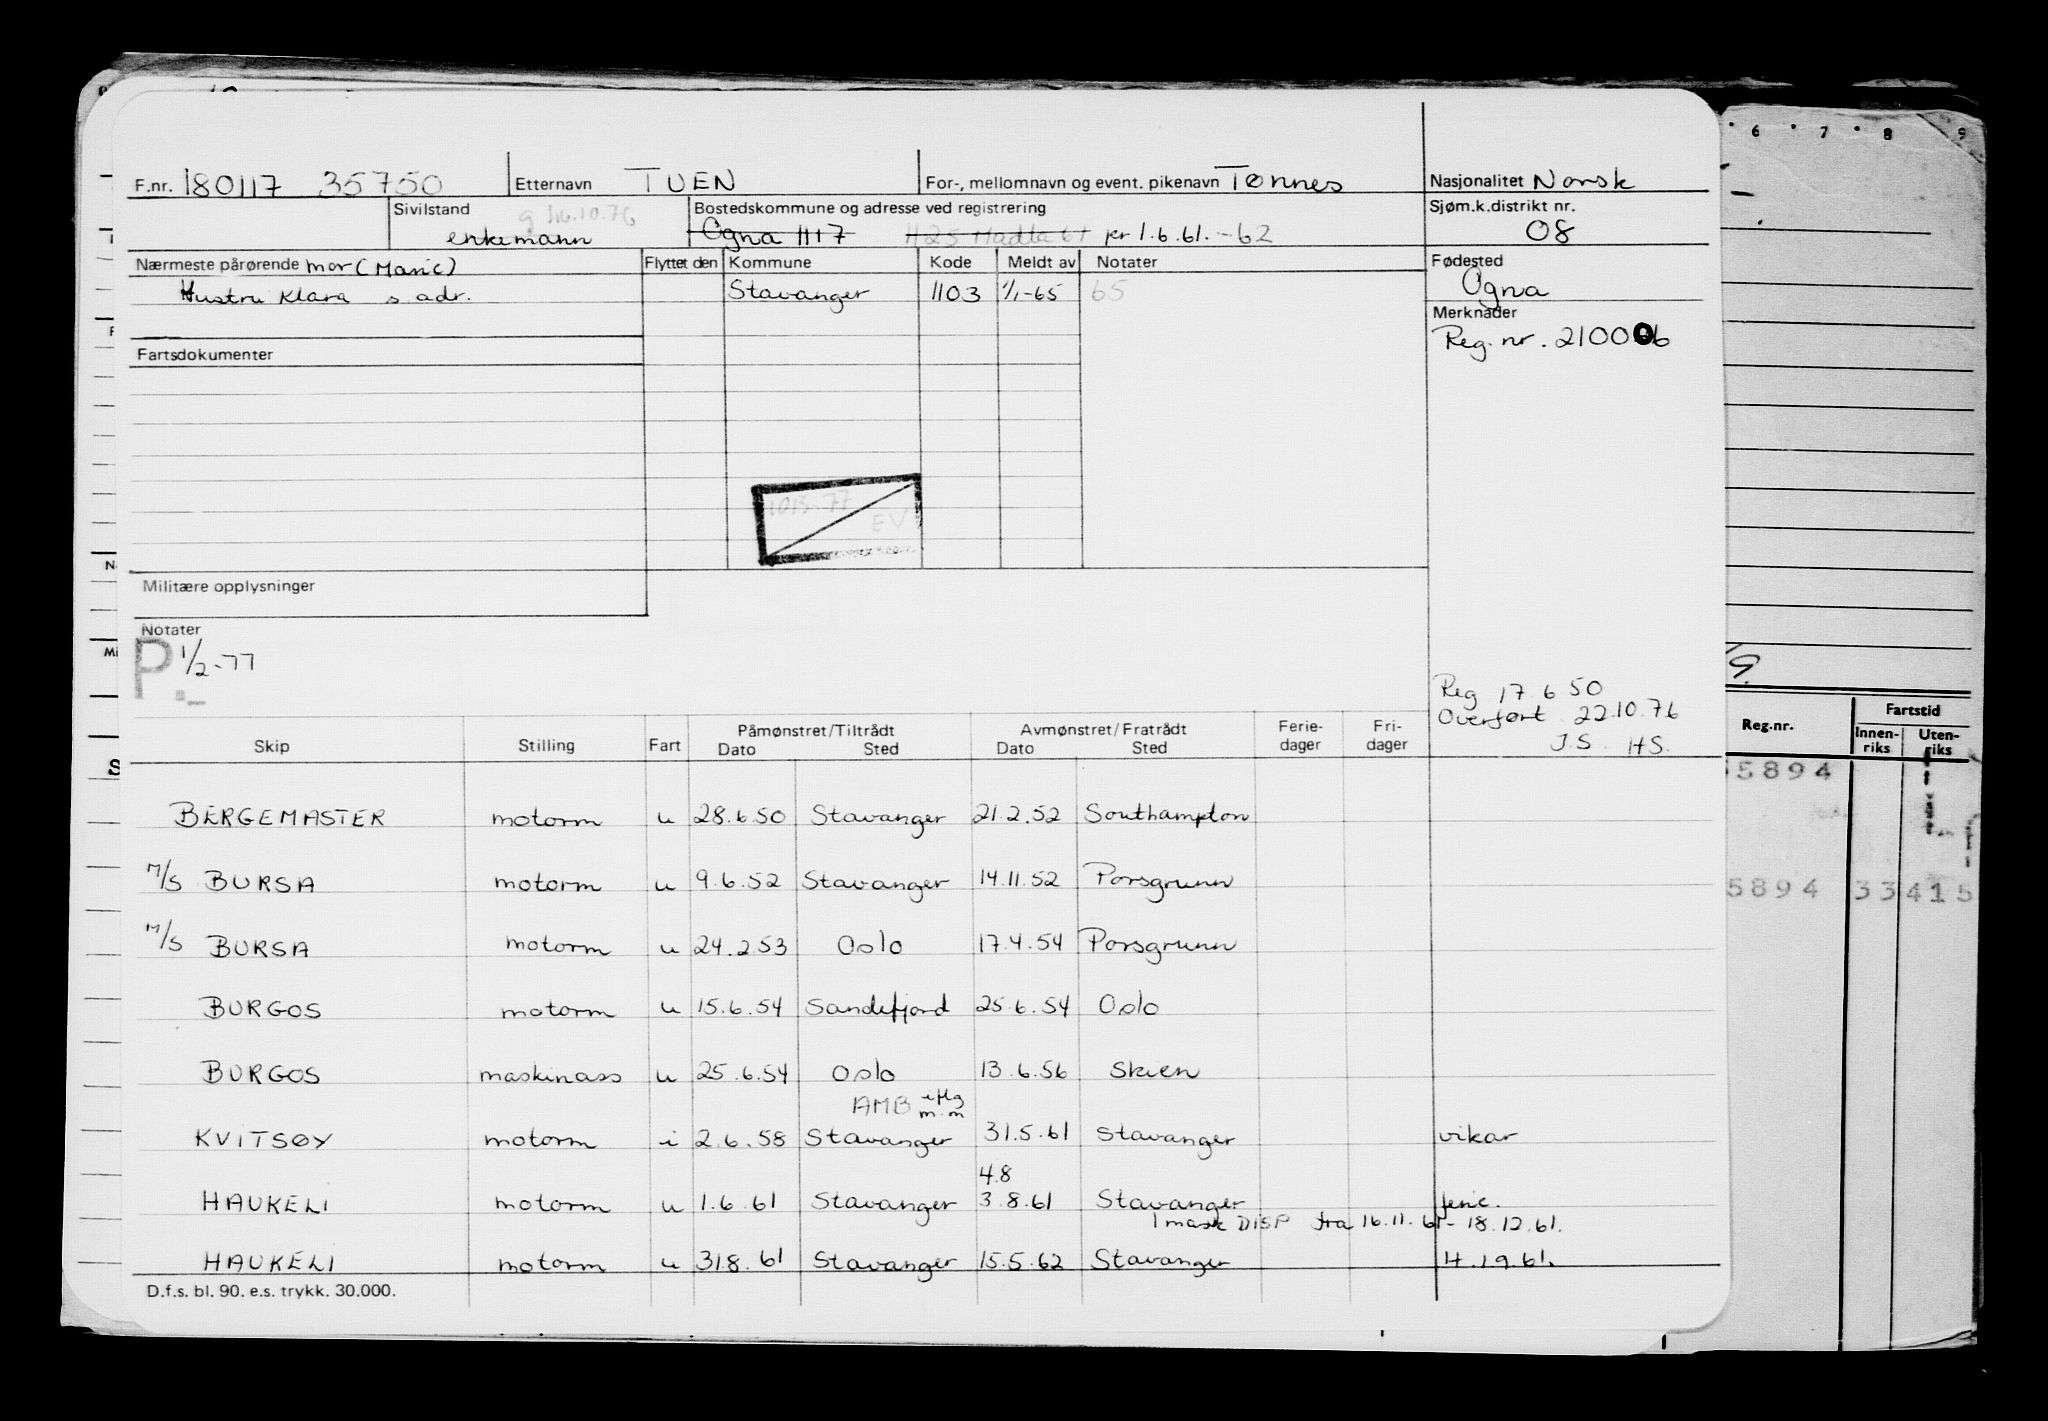 F.nr. 180117 35750 Etternavn TUEN For-, mellomnavn og event. pikenavn Tønnes Nasjonalitet Norsk
Sivilstand g 16.10.76 Bostedskommune og adresse ved registrering Sjøm.k.distrikt nr.
enkemann Ogna 1117 pr 1.6.61. -62 08
Nærmeste pårørende mor (Marie) Flyttet den Kommune Kode Meldt av Notater Fødested
Hustru Klara s adr. Stavanger 1103 1/1-65 65 Ogna
Merknader
Reg. nr. 210006
Fartsdokumenter
1013-77
EV
Militære opplysninger
Notater
P. 1/2-77
Reg 17.6 50
Overført 22.10.76
J.S. HS.
Skip Stilling Fart Påmønstret/Tiltrådt Avmønstret/Fratrådt Ferie- Fri-
Dato Sted Dato Sted dager dager
BERGEMASTER motorm u 28.6.50 Stavanger 21.2.52 Southampton
M/S BURSA motorm u 9.6.52 Stavanger 14.11.52 Porsgrunn
M/S BURSA motorm u 24.2.53 Oslo 17.4.54 Porsgrunn
BURGOS motorm u 15.6.54 Sandefjord 25.6.54 Oslo
BURGOS maskinass u 25.6.54 Oslo 13.6.56 Skien
AMB eftg m.m
KVITSØY motorm i 2.6.58 Stavanger 31.5.61 Stavanger vikar
4.8
HAUKELI motorm u 1.6 61 Stavanger 3.8.61 Stavanger ferie.
1 mask DISP fra 16.11.61- 18.12.61.
HAUKELI motorm u 318.61 Stavanger 15.5.62 Stavanger
D.f.s. bl. 90. e.s. trykk. 30.000.
6 7 8 9
Reg.nr. Fartstid
Innen-riks Uten-riks
5894
5894 33415